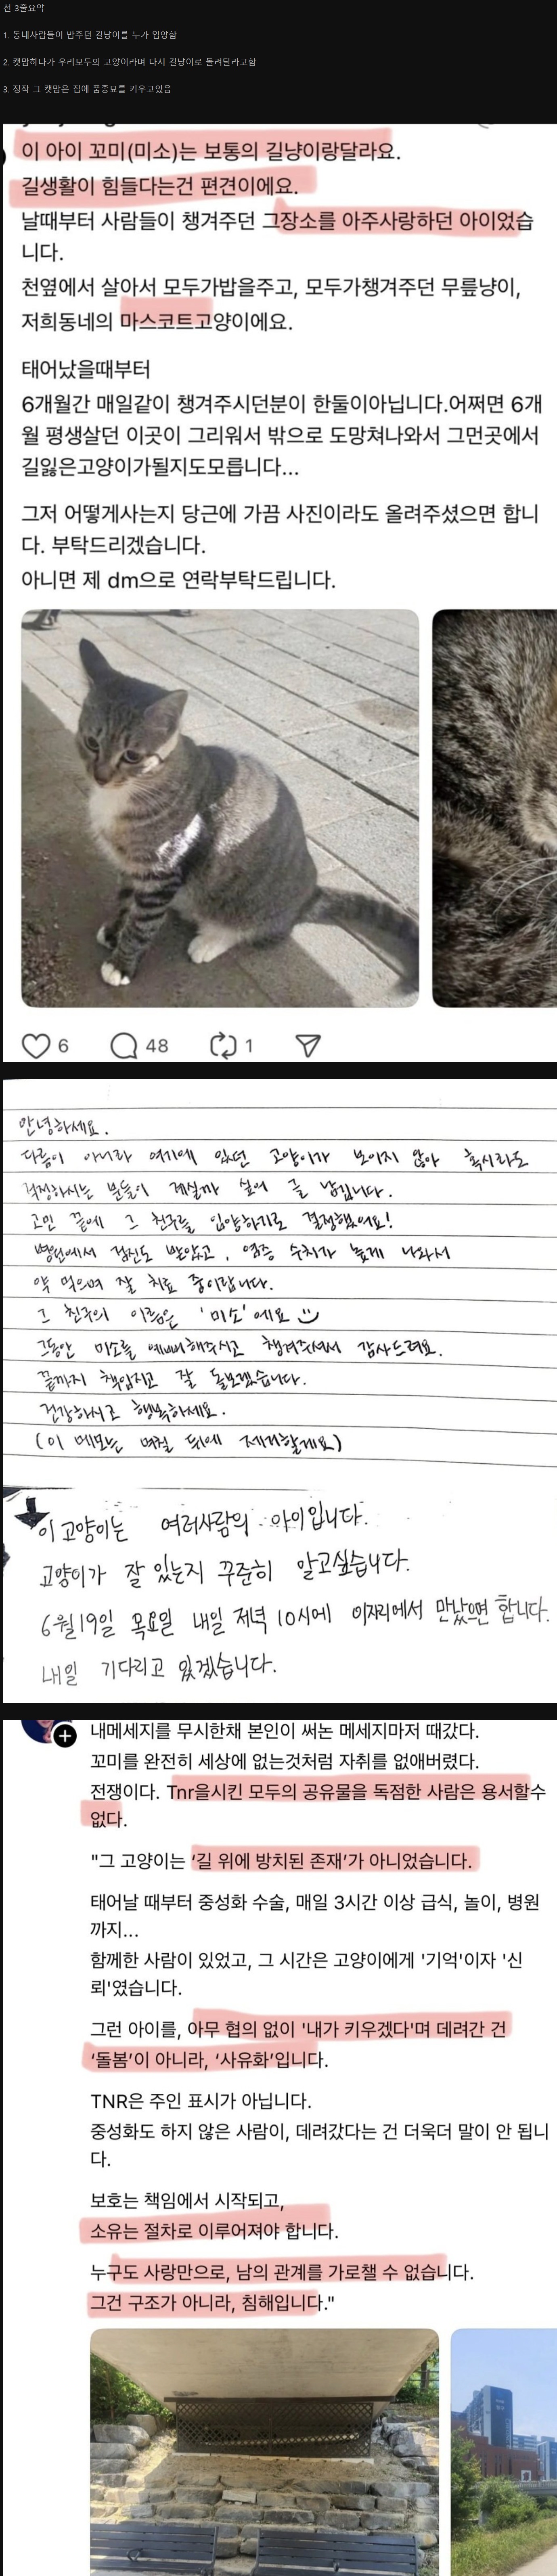 선 3줄요약
1. 동네사람들이 밥주던 길냥이를 누가 입양함
2. 캣맘하나가 우리모두의 고양이라며 다시 길냥이로 돌려달라고함
3. 정작 그 캣맘은 집에 품종묘를 키우고있음
이 아이 꼬미(미소)는 보통의 길냥이랑달라요.
길생활이 힘들다는건 편견이에요.
날때부터 사람들이 챙겨주던 그장소를 아주사랑하던 아이었습
니다.
천옆에서 살아서 모두가밥을주고, 모두가챙겨주던 무릎냥이,
저희동네의 마스코트고양이에요.
태어났을때부터
6개월간 매일같이 챙겨주시던분이 한둘이아닙니다.어쩌면 6개
월 평생살던 이곳이 그리워서 밖으로 도망쳐나와서 그먼곳에서
길잃은고양이가될지도모릅니다...
그저 어떻게사는지 당근에 가끔 사진이라도 올려주셨으면 합니
다. 부탁드리겠습니다.
아니면 제 dm으로 연락부탁드립니다.
6 48 1
안녕하세요.
다름이 아니라 여기에 있던 고양이가 보이지 않아 혹시라도
걱정하시는 분들이 계실까 싶어 글 남깁니다.
고민 끝에 그 친구를 입양하기로 결정했어요!
병원에서 검진도 받았고, 염증 수치가 높게 나와서
약 먹으며 잘 치료 중이랍니다.
그 친구의 이름은 '미소'에요
그동안 미소를 예뻐해주시고 챙겨주셔서 감사드려요.
끝까지 책임지고 잘 돌보겠습니다.
건강하시고 행복하세요.
(이 메모는 며칠 뒤에 제거할게요)
이 고양이는 여러사람의 아이입니다.
고양이가 잘 있는지 꾸준히 알고싶습니다.
6월19일 목요일 내일 저녁 10시에 이자리에서 만났으면 합니다.
내일 기다리고 있겠습니다.
내메세지를 무시한채 본인이 써논 메세지마저 때갔다.
꼬미를 완전히 세상에 없는것처럼 자취를 없애버렸다.
전쟁이다. Tnr을시킨 모두의 공유물을 독점한 사람은 용서할수
없다.
"그 고양이는 '길 위에 방치된 존재'가 아니었습니다.
태어날 때부터 중성화 수술, 매일 3시간 이상 급식, 놀이, 병원
까지...
함께한 사람이 있었고, 그 시간은 고양이에게 '기억'이자 '신
뢰'였습니다.
그런 아이를, 아무 협의 없이 '내가 키우겠다'며 데려간 건
'돌봄'이 아니라, '사유화'입니다.
TNR은 주인 표시가 아닙니다.
중성화도 하지 않은 사람이, 데려갔다는 건 더욱더 말이 안 됩니
다.
보호는 책임에서 시작되고,
소유는 절차로 이루어져야 합니다.
누구도 사랑만으로, 남의 관계를 가로챌 수 없습니다.
그건 구조가 아니라, 침해입니다."